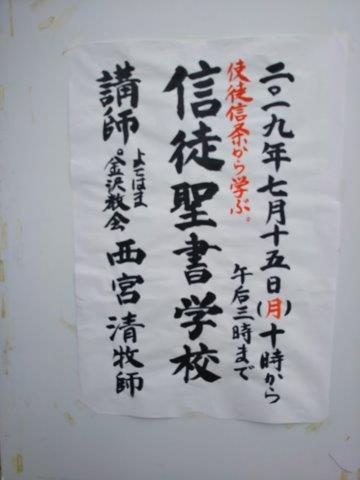 二〇一九年七月十五日(月)十時から
午后三時まで
使徒信条から学ぶ。
信徒聖書学校
講師 よこはま金沢教会 西宮清牧師